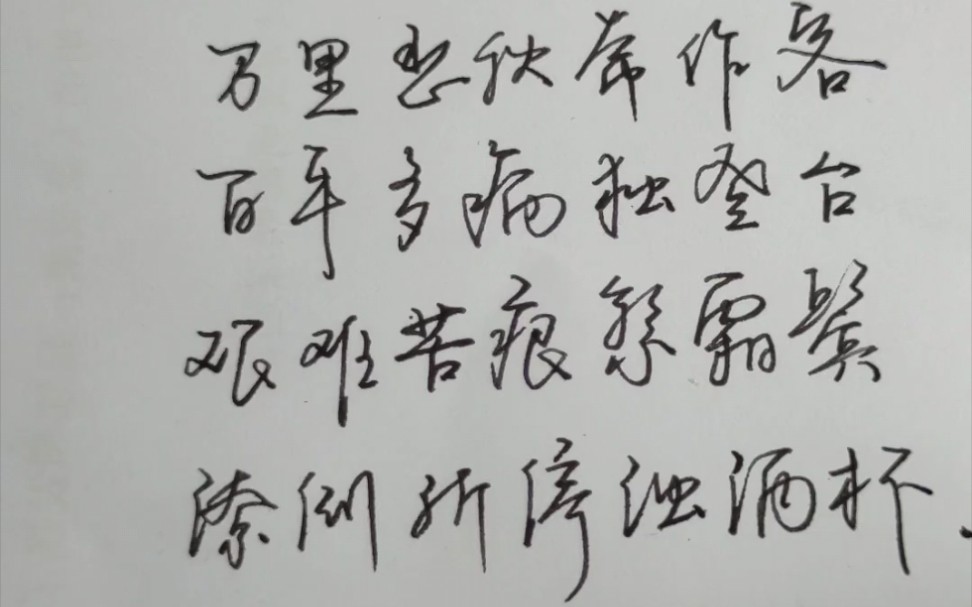 万里悲秋常作客
百年多病独登台
艰难苦痕繁霜鬓
潦倒新停浊酒杯.